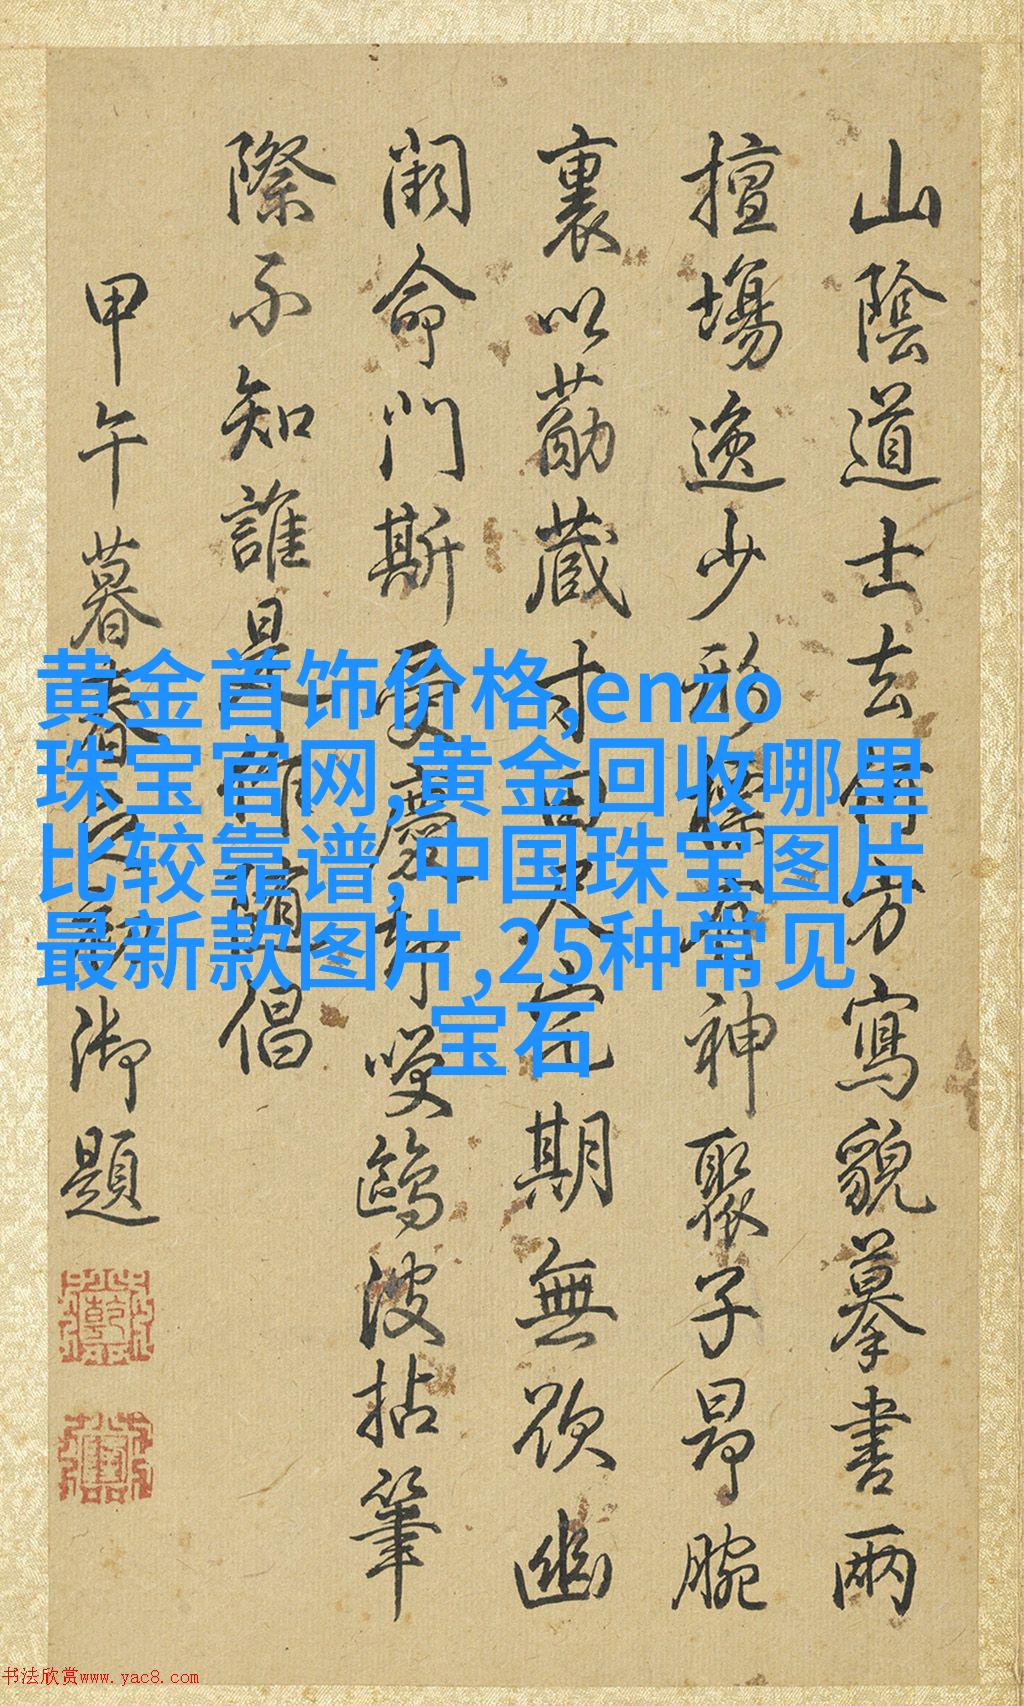 山陰道士去方寫貌摹書兩
擅場逸少形神聚子昂腕
裏以藏尺期無欲幽
命門斯鷗波拈筆
際不知誰是隨倡
甲午暮春之初御題
黄金首饰价格,enzo
珠宝官网,黄金回收哪里
比较靠谱,中国珠宝图片
最新款图片,25种常见
宝石
书法欣赏www.yac8.com